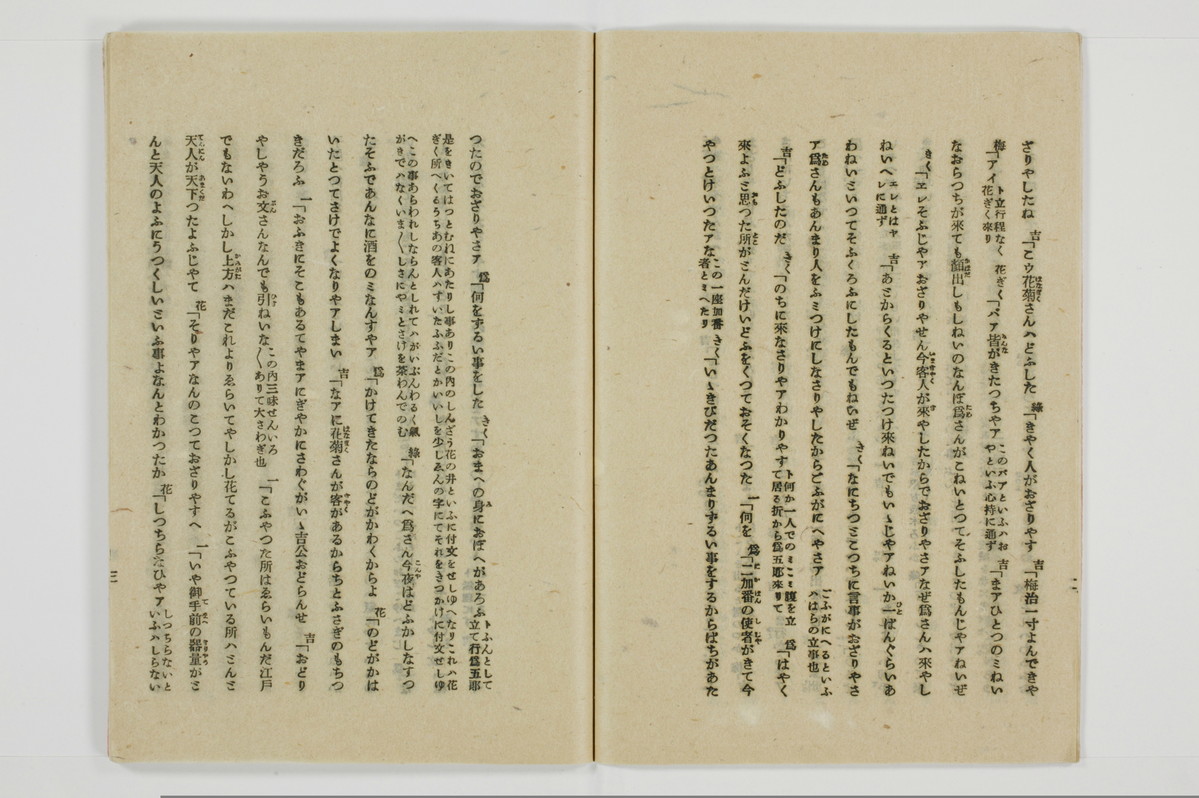 ざりやしたね 吉「こウ花菊さんへどふした 緑「きやく人がおざりやす 吉「梅治一寸よんできや
梅「アイ ト立行程なく花ぎく來り 花ぎく「バア皆がきたつちやア このバアといふハおやといふ心持に通ず 吉「まアひとつのミねい
なおらつちが來ても顔出しもしねいのなんぼ爲さんがこねいとつてそふしたもんじやアねいぜ
きく「エレそふじやアおざりやせん今客人が來やしたからでおざりやさアなぜ爲さんハ來やし
ねいヘ エレとはヤレに通ず 吉「あミからくるといつたつけ來ねいでもいゝじやアねいか一ばんぐらいあ
わねいミいつてそふくろふにしたもんでもねいぜ きく「なにちつミこつちに言事がおざりやさ
ア爲さんもあんまり人をふミつけにしなさりやしたからごふがにへやさア ごふがにへるといふハはらの立事也
吉「どふしたのだ きく「のちに來なさりやアわかりやす ト何か一人でのミこミ腹を立て居る折から爲五郎來りて 爲「はやく
來よふミ思つた所がミんだけいどふをくつておそくなつた 一「何を 爲「二加番の使者がきて今
やつとけいつたアな この一座加番者とミへたり きく「いゝきびだつたあんまりずるい事をするからばちがあた
二
つたのでおざりやさア 爲「何をずるい事をした きく「おまへの身におぼへがあろふ ト ふんとして立て行爲五郎
是をきいてはつとむねにあたりし事ありこの内のしんざう花の井といふに付文をせしゆへなりこれハ花
ぎく所へくるうちあの客人ハずいたふふだとかいいしを少しゑんの字にてそれをきつかけに付文せしゆ
へこの事あらわれしならんとしれてハがいぶんわるく
がきでハなくいま〱しさにやミとさけを茶わんでのむ 緑「なんだへ爲さん今夜はどふかしなすつ
たそふであんなに酒をのミなんすやア 爲「かけてきたならのどがかわくからよ 花「のどがかは
いたとつてさけでよくなりやアしまい 吉「なアに花菊さんが客があるからちとふさぎのもちつ
きだろふ 一「おふきにそこもあるてやまアにぎやかにさわぐがいゝ吉公おどらんせ 吉「おどり
やしやうお文さんなんでも引ねいな この内三味せんいろ〱ありて大さわぎ也 一「こふやつた所はゑらいもんだ江戸
でもないわへしかし上方ハまだこれよりゑらいてやしかし花てるがこふやつている所ハミんミ
天人が天下つたよふじやて 花「そりやアなんのこつておざりやすへ 一「いや御手前の器量がミ
んと天人のよふにうつくしいミいふ事よなんとわかつたか 花「しつちらなひやア しつちらないといふハしらない
三